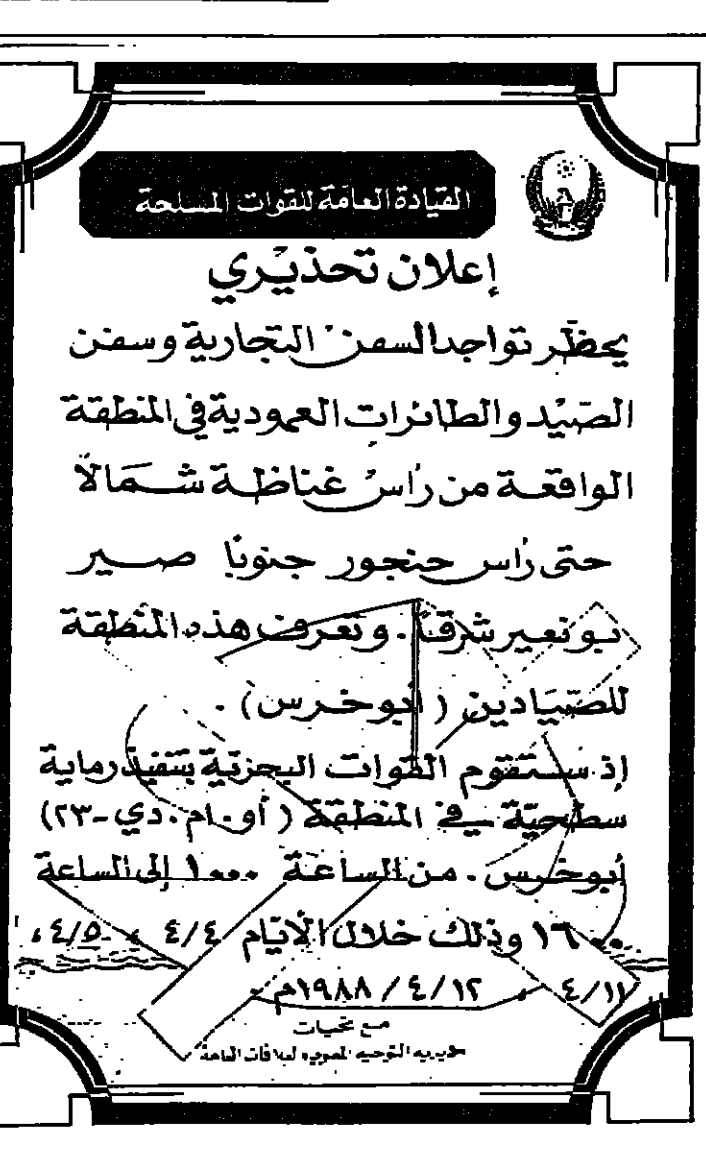 القيادة العامة للقوات المسلحة
إعلان تحذيري
يحظر تواجد السفن التجارية وسفن
الصيد والطائرات العمودية في المنطقة
الواقعة من رأس غناظة شمالاً
حتى رأس حنجور جنوبا صير
بو نعير شرقاً . وتعرف هذه المنطقة
للصيادين ( أبو خرس ) .
إذ ستقوم القوات البحرية بتنفيذ رماية
سطحية في المنطقة ( أو . ام . دي - ٢٣ )
أبو خرس . من الساعة ١٠٠٠ إلى الساعة
١٦٠٠ وذلك خلال الأيام ٤/٤ ، ٤/٥ ،
٤/١١ ، ٤/١٢ / ١٩٨٨م .
مع تحيات
مديرية التوجيه المعنوي